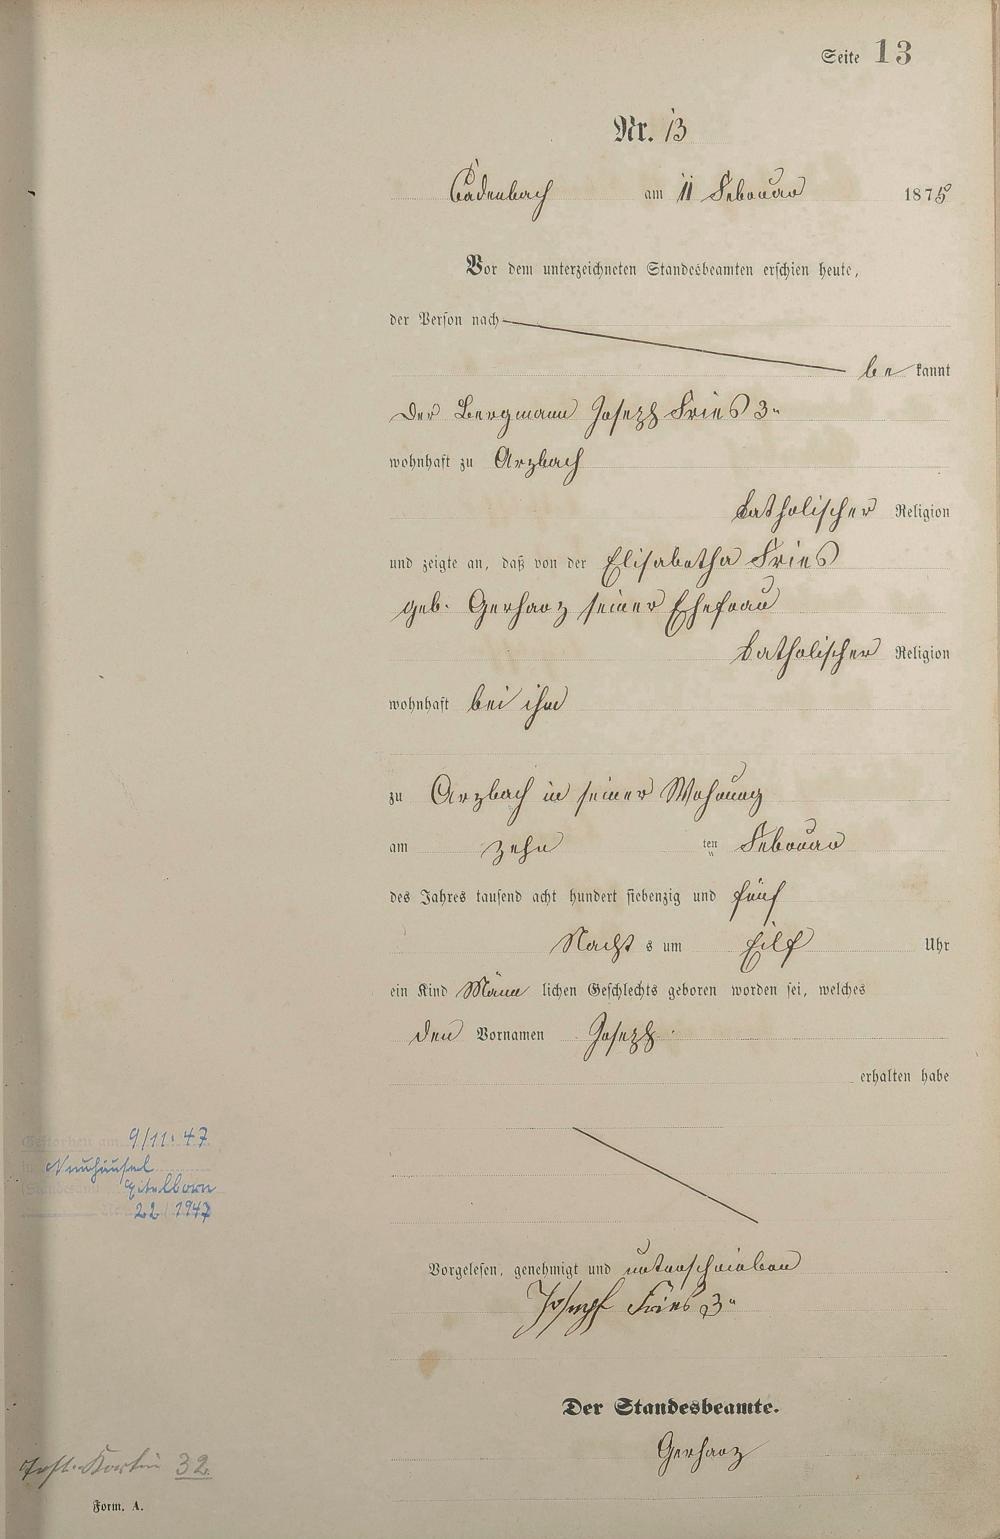 Seite 13
Nr. 13
Cadenbach am 11 Februar 1875
Vor dem unterzeichneten Standesbeamten erschien heute,
der Person nach
be kannt
der Bergmann Joseph Fries 3"
wohnhaft zu Arzbach
katholischer Religion
und zeigte an, daß von der Elisabetha Fries
geb. Gerharz seiner Ehefrau
katholischer Religion
wohnhaft bei ihm
zu Arzbach in seiner Wohnung
am zehn ten Februar
des Jahres tausend acht hundert siebenzig und fünf
Nacht s um Eilf Uhr
ein Kind Männ lichen Geschlechts geboren worden sei, welches
den Vornamen Joseph
erhalten habe
Gestorben am 9/11.47
in Neuhäusel
(Standesamt Eitelborn
Nr. 22/1947
Vorgelesen, genehmigt und unterschrieben
Joseph Fries 3"
Der Standesbeamte.
Gerharz
32.
Form. A.